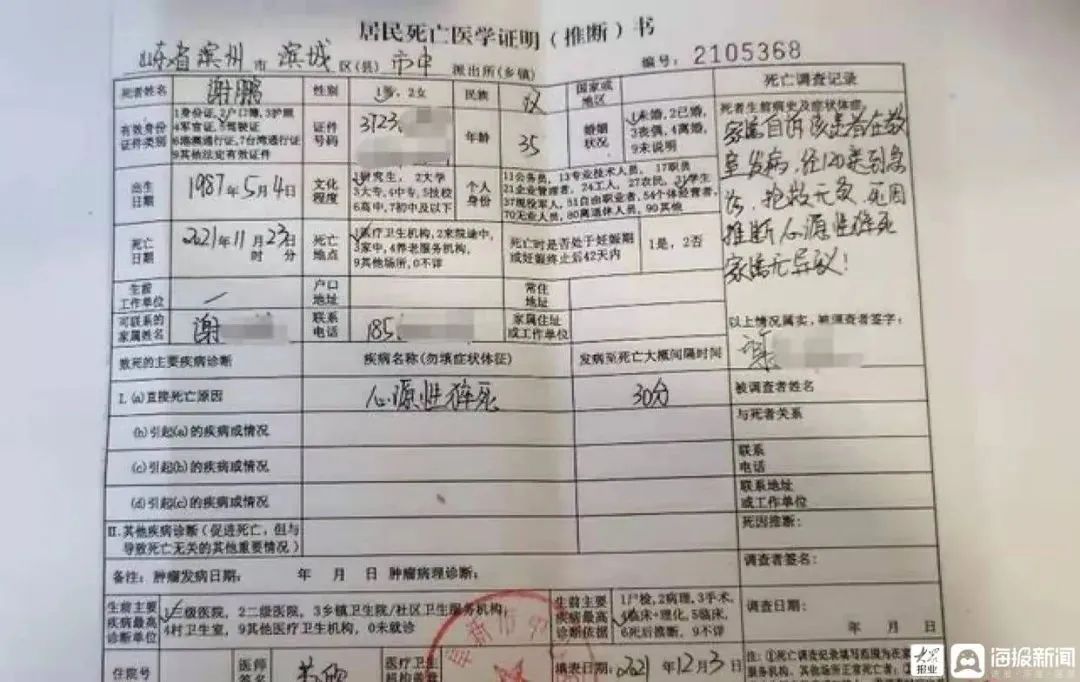 居民死亡医学证明（推断）书
山东省滨州市滨城区(县)市中派出所(乡镇)
编号：2105368
死者姓名 谢鹏 性别 1男，2女 民族 汉 国家或地区
有效身份证件类别 1身份证，2户口簿，3护照
4军官证，5驾驶证
6港澳通行证，7台湾通行证
9其他法定有效证件
证件号码 3723
年龄 35
婚姻状况 1未婚，2已婚，
3丧偶，4离婚，
9未说明
出生日期 1987年5月4日
文化程度 1研究生，2大学
3大专，4中专，5技校
6高中，7初中及以下
个人身份 11公务员，13专业技术人员，17职员
21企业管理者，24工人，27农民，31学生
37现役军人，51自由职业者，54个体经营者，
70无业人员，80离退休人员，90其他
死亡日期 2021年11月23日
时 分
死亡地点 1医疗卫生机构，2来院途中，
3家中，4养老服务机构，
9其他场所，0不详
死亡时是否处于妊娠期
或妊娠终止后42天内
1是，2否
生前工作单位 — 户口地址 常住地址
可联系的家属姓名 谢 联系电话 185 家属住址或工作单位
致死的主要疾病诊断 疾病名称(勿填症状体征) 发病至死亡大概间隔时间
I.(a)直接死亡原因 心源性猝死 30分
(b)引起(a)的疾病或情况
(c)引起(b)的疾病或情况
(d)引起(c)的疾病或情况
II.其他疾病诊断（促进死亡，但与
导致死亡无关的其他重要情况）
备注：肿瘤发病日期： 年 月 日 肿瘤病理诊断：
生前主要疾病最高诊断单位 1三级医院，2二级医院，3乡镇卫生院/社区卫生服务机构，
4村卫生室，9其他医疗卫生机构，0未就诊
生前主要疾病最高诊断依据 1尸检，2病理，3手术，
4临床+理化，5临床，
6死后推断，9不详
住院号 医师签名 医疗卫生机构盖章 填表日期：2021年12月3日
死亡调查记录
死者生前病史及症状体征：
家属自诉该患者在教
室发病，经120送到急
诊，抢救无效，死因
推断心源性猝死
家属无异议！
以上情况属实，被调查者签字：
被调查者姓名
与死者关系
联系电话
联系地址
或工作单位
死因推断：
调查者签名：
调查日期：
年 月 日
注：①死亡调查记录填写范围为在家
服务机构、其他场所正常死亡者；②
大众报业
海报新闻